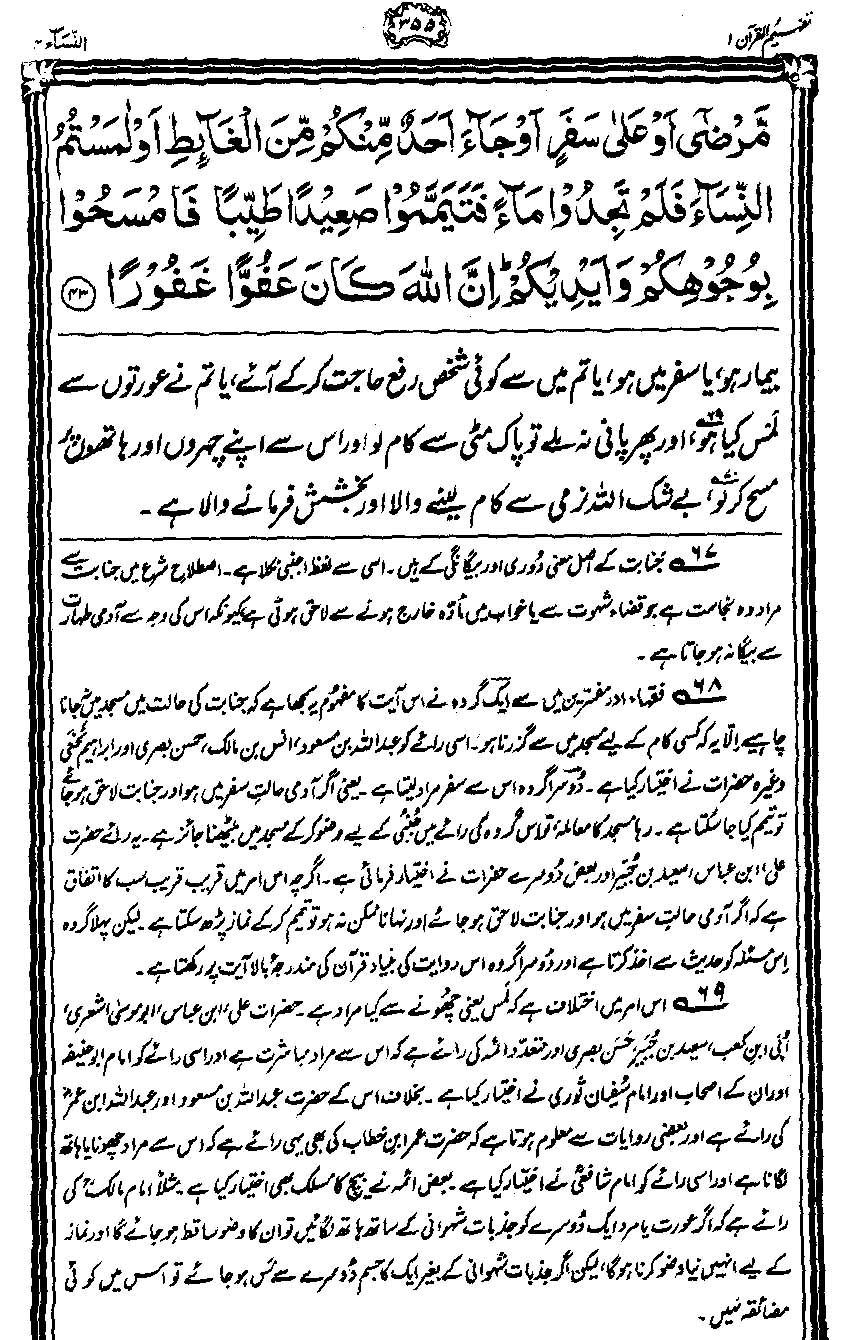 تفہیم القرآن ۱
۳۵۵
النساء ۴
مَّرْضٰٓى اَوْ عَلٰى سَفَرٍ اَوْ جَآءَ اَحَدٌ مِّنْكُمْ مِّنَ الْغَآئِطِ اَوْ لٰمَسْتُمُ
النِّسَآءَ فَلَمْ تَجِدُوْا مَآءً فَتَيَمَّمُوْا صَعِيْدًا طَيِّبًا فَامْسَحُوْا
بِوُجُوْهِكُمْ وَاَيْدِيْكُمْ ؕ اِنَّ اللّٰهَ كَانَ عَفُوًّا غَفُوْرًا ﴿۴۳﴾
بیمار ہو، یا سفر میں ہو، یا تم میں سے کوئی شخص رفع حاجت کر کے آئے، یا تم نے عورتوں سے
لمس کیا ہو۶۹، اور پھر پانی نہ ملے تو پاک مٹی سے کام لو اور اس سے اپنے چہروں اور ہاتھوں پر
مسح کر لو۷۰، بے شک اللہ نرمی سے کام لینے والا اور بخشش فرمانے والا ہے۔
۶۷ جنابت کے اصل معنی دُوری اور بیگانگی کے ہیں۔ اسی سے لفظ اجنبی نکلا ہے۔ اصطلاحِ شرع میں جنابت سے
مراد وہ نجاست ہے جو قضاء شہوت سے یا خواب میں مادّہ خارج ہونے سے لاحق ہوتی ہے کیونکہ اس کی وجہ سے آدمی طہارت
سے بیگانہ ہو جاتا ہے۔
۶۸ فقہاء اور مفسّرین میں سے ایک گروہ نے اس آیت کا مفہوم یہ سمجھا ہے کہ جنابت کی حالت میں مسجد میں نہ جانا
چاہیے اِلّا یہ کہ کسی کام کے لیے مسجد میں سے گزرنا ہو۔ اسی رائے کو عبداللہ بن مسعود، انس بن مالک، حسن بصری اور ابراہیم نخعی
وغیرہ حضرات نے اختیار کیا ہے۔ دُوسرا گروہ اس سے سفر مراد لیتا ہے۔ یعنی اگر آدمی حالتِ سفر میں ہو اور جنابت لاحق ہو جائے
تو تیمم کیا جا سکتا ہے۔ رہا مسجد کا معاملہ، تو اس گروہ کی رائے میں جُنبی کے لیے وضو کر کے مسجد میں بیٹھنا جائز ہے۔ یہ رائے حضرت
علی، ابن عباس، سعید بن جُبَیر اور بعض دُوسرے حضرات نے اختیار فرمائی ہے۔ اگرچہ اس امر میں قریب قریب سب کا اتفاق
ہے کہ اگر آدمی حالتِ سفر میں ہو اور جنابت لاحق ہو جائے اور نہانا ممکن نہ ہو تو تیمم کر کے نماز پڑھ سکتا ہے۔ لیکن پہلا گروہ
اِس مسئلہ کو حدیث سے اخذ کرتا ہے اور دُوسرا گروہ اس روایت کی بنیاد قرآن کی مندرجۂ بالا آیت پر رکھتا ہے۔
۶۹ اس امر میں اختلاف ہے کہ لمس یعنی چھونے سے کیا مراد ہے۔ حضرات علی، ابن عباس، ابو موسیٰ اشعری،
اُبَیّ ابن کعب، سعید بن جُبَیر، حَسَن بصری اور متعدد ائمہ کی رائے ہے کہ اس سے مراد مباشرت ہے اور اسی رائے کو امام ابو حنیفہ
اور ان کے اصحاب اور امام سُفیان ثوری نے اختیار کیا ہے۔ بخلاف اس کے حضرت عبداللہ بن مسعود اور عبداللہ ابن عمر
کی رائے ہے اور بعض روایات سے معلوم ہوتا ہے کہ حضرت عمر ابن خطاب کی بھی یہی رائے ہے کہ اس سے مراد چھونا یا ہاتھ
لگانا ہے اور اسی رائے کو امام شافعیؒ نے اختیار کیا ہے۔ بعض ائمہ نے بیچ کا مسلک بھی اختیار کیا ہے۔ مثلاً امام مالکؒ کی
رائے ہے کہ اگر عورت یا مرد ایک دُوسرے کو جذباتِ شہوانی کے ساتھ ہاتھ لگائیں تو ان کا وضو ساقط ہو جائے گا اور نماز
کے لیے انہیں نیا وضو کرنا ہوگا، لیکن اگر جذباتِ شہوانی کے بغیر ایک کا جسم دُوسرے سے مَس ہو جائے تو اس میں کوئی
مضائقہ نہیں۔